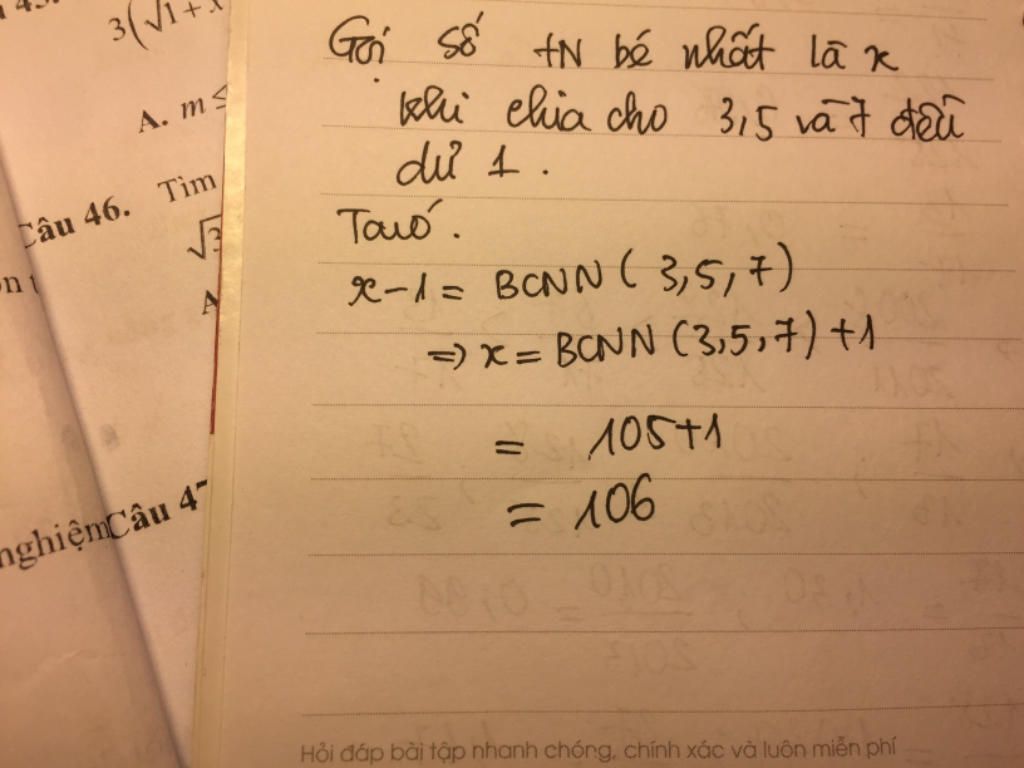 3(√1+x
A. m ≤
Câu 46. Tìm
√3
A
nghiệm
Câu 47
Gọi số tN bé nhất là x
khi chia cho 3,5 và 7 đều
dư 1.
Ta có.
x-1 = BCNN (3,5,7)
=> x = BCNN (3,5,7) +1
= 105+1
= 106
Hỏi đáp bài tập nhanh chóng, chính xác và luôn miễn phí